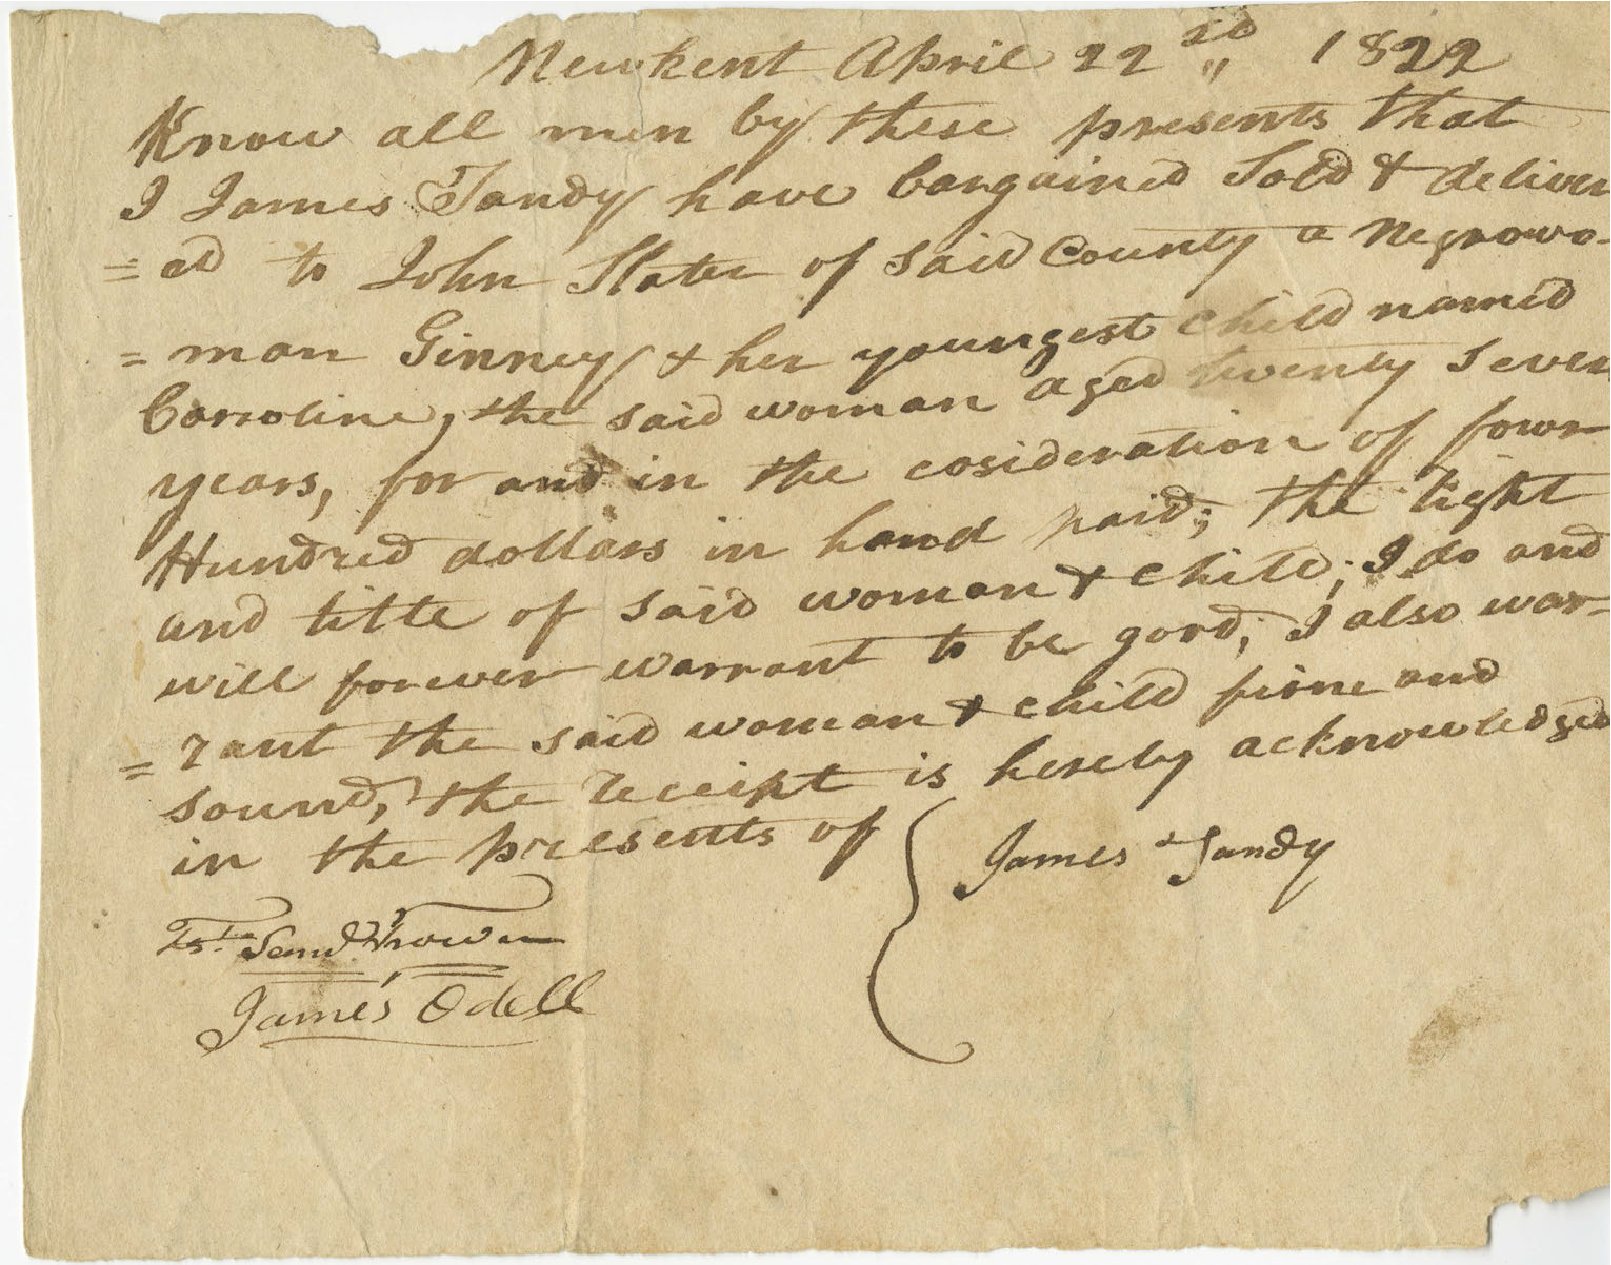 Newkent April 22 2d 1822
Know all men by these presents that
I James Tandy have bargained Sold & deliver
= ed to John Slater of said County a Negrowo-
= man Ginney & her youngest child named
Carroline, the said woman aged twenty seven
years, for and in the cosideration of fowr
Hundred dollars in hand paid; the right
and title of said woman & child; I do and
will forever warrant to be good; I also war=
= rant the said woman & child firme and
sound, the receipt is hereby acknowledged
in the presents of
James Tandy
James Odell